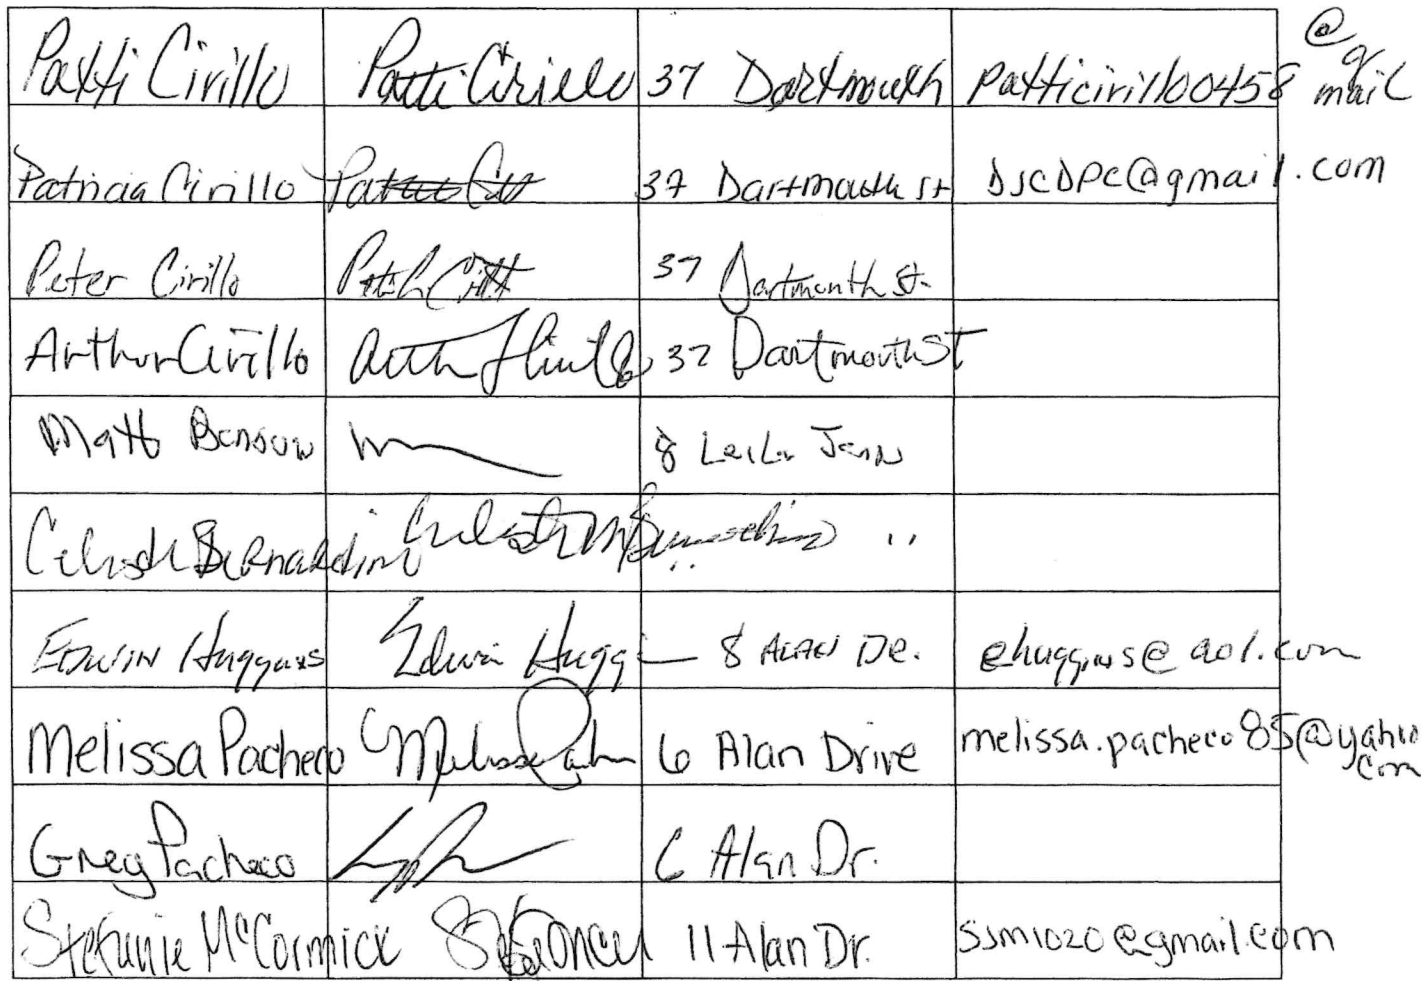 Patti Cirillo Patti Cirillo 37 Dartmouth patticirillo0458 @gmail
Patricia Cirillo 37 Dartmouth St DJCDPC@gmail.com
Peter Cirillo 37 Dartmouth St.
Arthur Cirillo 37 Dartmouth ST
Matt 8 Leila Jean
Celeste Bernardini " "
Edwin Huggins Edwin Huggi 8 Alan Dr. ehuggins@aol.com
Melissa Pacheco Melissa 6 Alan Drive melissa.pacheco85@yahoo.com
Greg Pacheco 6 Alan Dr.
Stefanie McCormick 11 Alan Dr. SJM1020@gmail.com